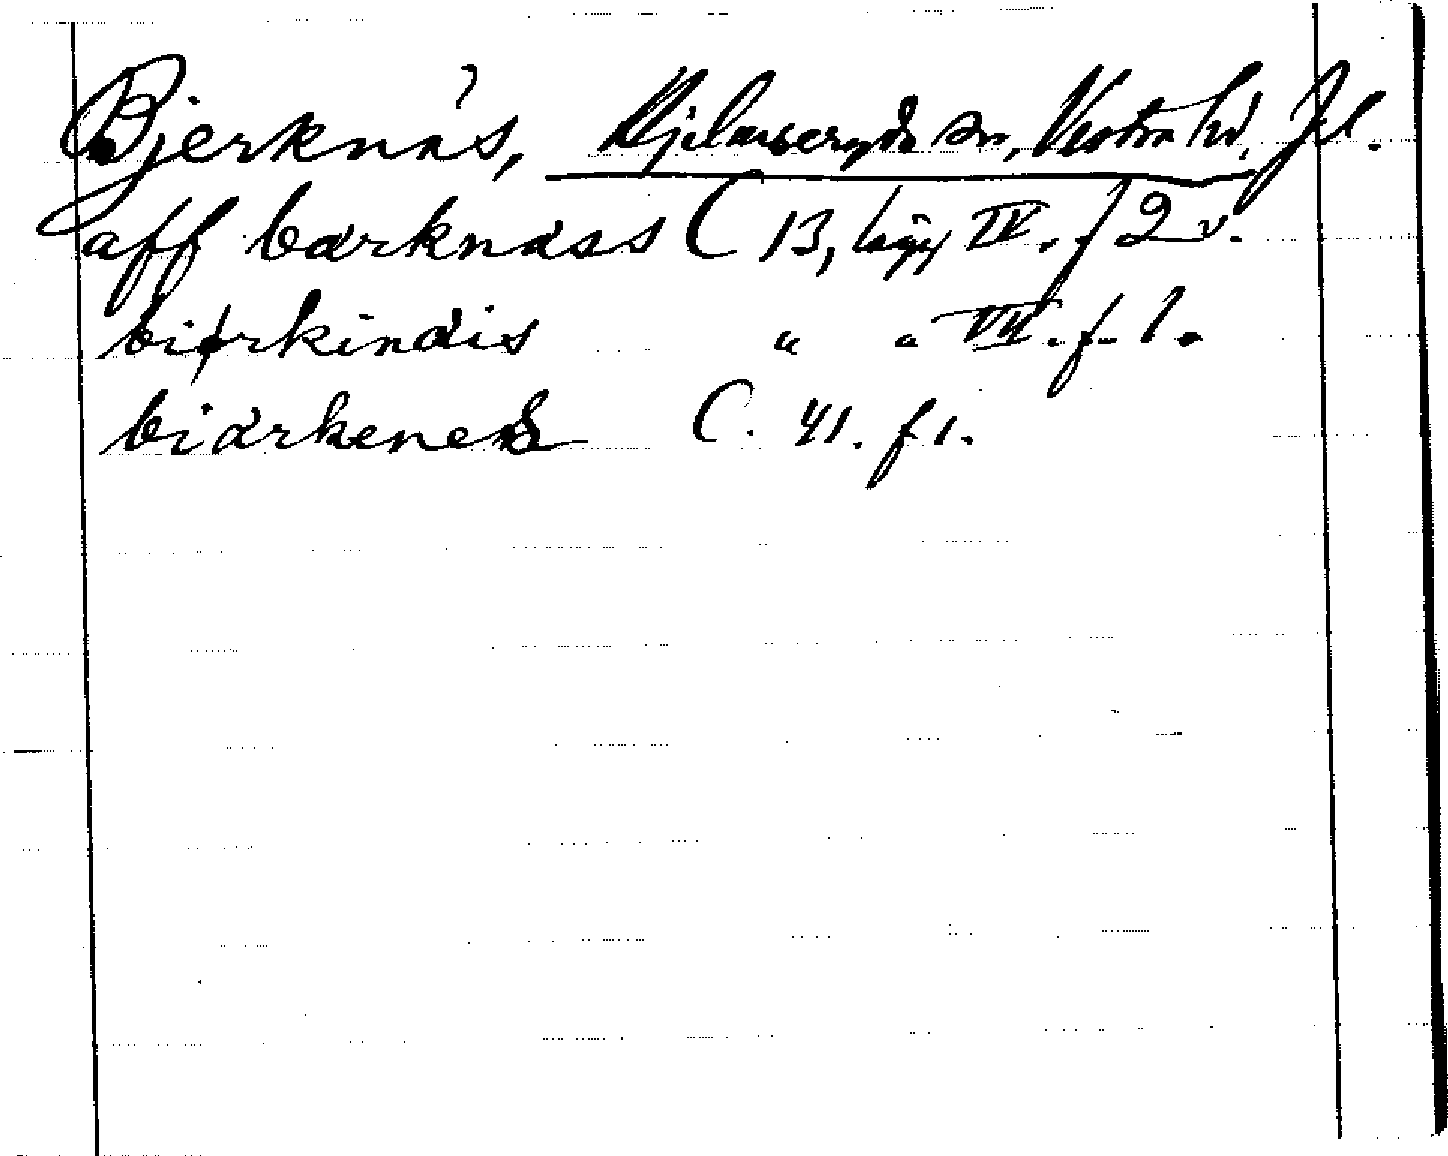 Bjerknäs, Kjelarseryds sn, Vestra hd, Jl.
aff barknass C 13, lägg IV. f 2 v.
biørkindis " " VII. f. 1.
biarkenes C. 41. f 1.